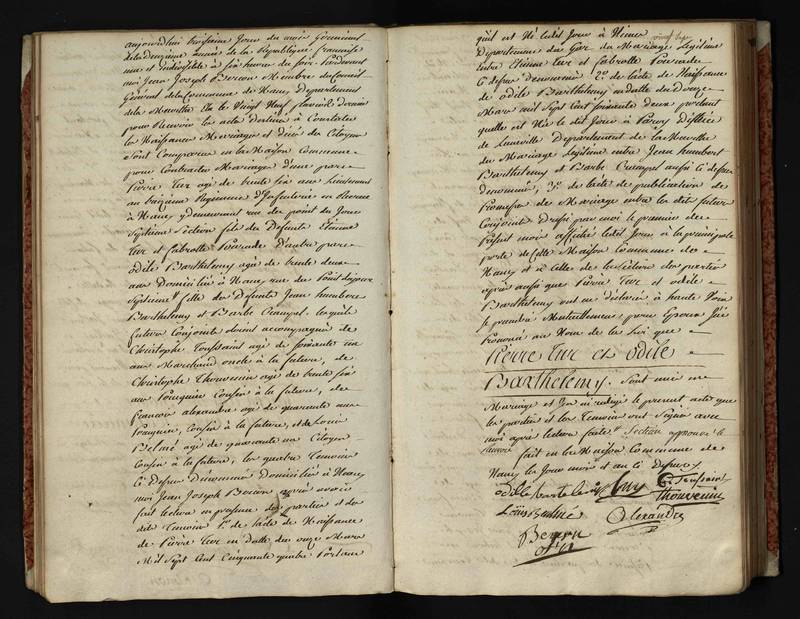 aujourdhui troisieme Jour du mois Germinal
de la deuxieme année de la République française
une et indivisible à six heures du soir Pardevant
moi Jean Joseph Membre du Conseil
Général de la Commune de Nancy Departement
de la Meurthe Elu le Vingt Neuf dernier
pour Recevoir les actes destinés à Constater
les Naissances Mariages et Décès des Citoyens
Sont Comparus en la Maison Commune
pour Contracter Mariage d'une part
Pierre agé de trente six ans Lieutenant
au Regiment d'Infanterie en
à Nancy y demeurant rue du point du Jour
Septieme Section fils de Defunts Etienne
et D'autre part
odile Barthelemy agée de trente deux
ans Domiciliée à Nancy rue du Point du jour
Septieme fille des Defunts Jean humbert
Barthelemy et Barbe lesquels
futurs Conjoints étoient accompagnés de
Christophe Toussaint agé de soixante un
ans Marchand oncle à la future, de
Christophe Thouvenin agé de trente six
ans Cousin à la future, de
francois alexandre agé de quarante ans
Cousin à la future, et de Louis
agé de quarante un Citoyen
Cousin à la future, les quatre Temoins
Ci dessus Denommés Domiciliés à Nancy
moi Jean Joseph après avoir
fait lecture en presence des parties et des
dits Temoins 1° de l'acte de Naissance
de Pierre en datte du onze Mars
Mil Sept Cent Cinquante quatre Portant
quil est Né ledit Jour à Nimes
Departement du Gar du Mariage Légitime
entre Etienne et
Ci dessus denommés 2° de l'acte de Naissance
de odile Barthelemy en datte du Douze
Mars mil Sept Cent soixante deux portant
quelle est Née le dit Jour à District
de Luneville Departement de la Meurthe
du Mariage Légitime entre Jean humbert
Barthelemy et Barbe aussi Ci dessus
denommés, 3° de l'acte de publication de
Promesse de Mariage entre les dits futurs
Conjoints Dressé par moi le premier de
Présent mois affiché ledit Jour à la principale
porte de cette Maison Commune de
Nancy et à Celle de la Section des parties
après aussi que Pierre et odile
Barthelemy ont eu déclaré à haute Voix
Se prendre Mutuellement pour Epoux J'ai
Prononcé au Nom de la Loi que
Pierre et odile
Barthelemy. Sont unis en
Mariage et J'en ai redigé le présent acte que
les parties et les Temoins ont Signé avec
moi après lecture faite Section approuvé le
fait en la Maison Commune de
Nancy les Jour mois et an Ci dessus
odile bartelemy C. Toussaint
Thouvenin
Louis
Alexandre